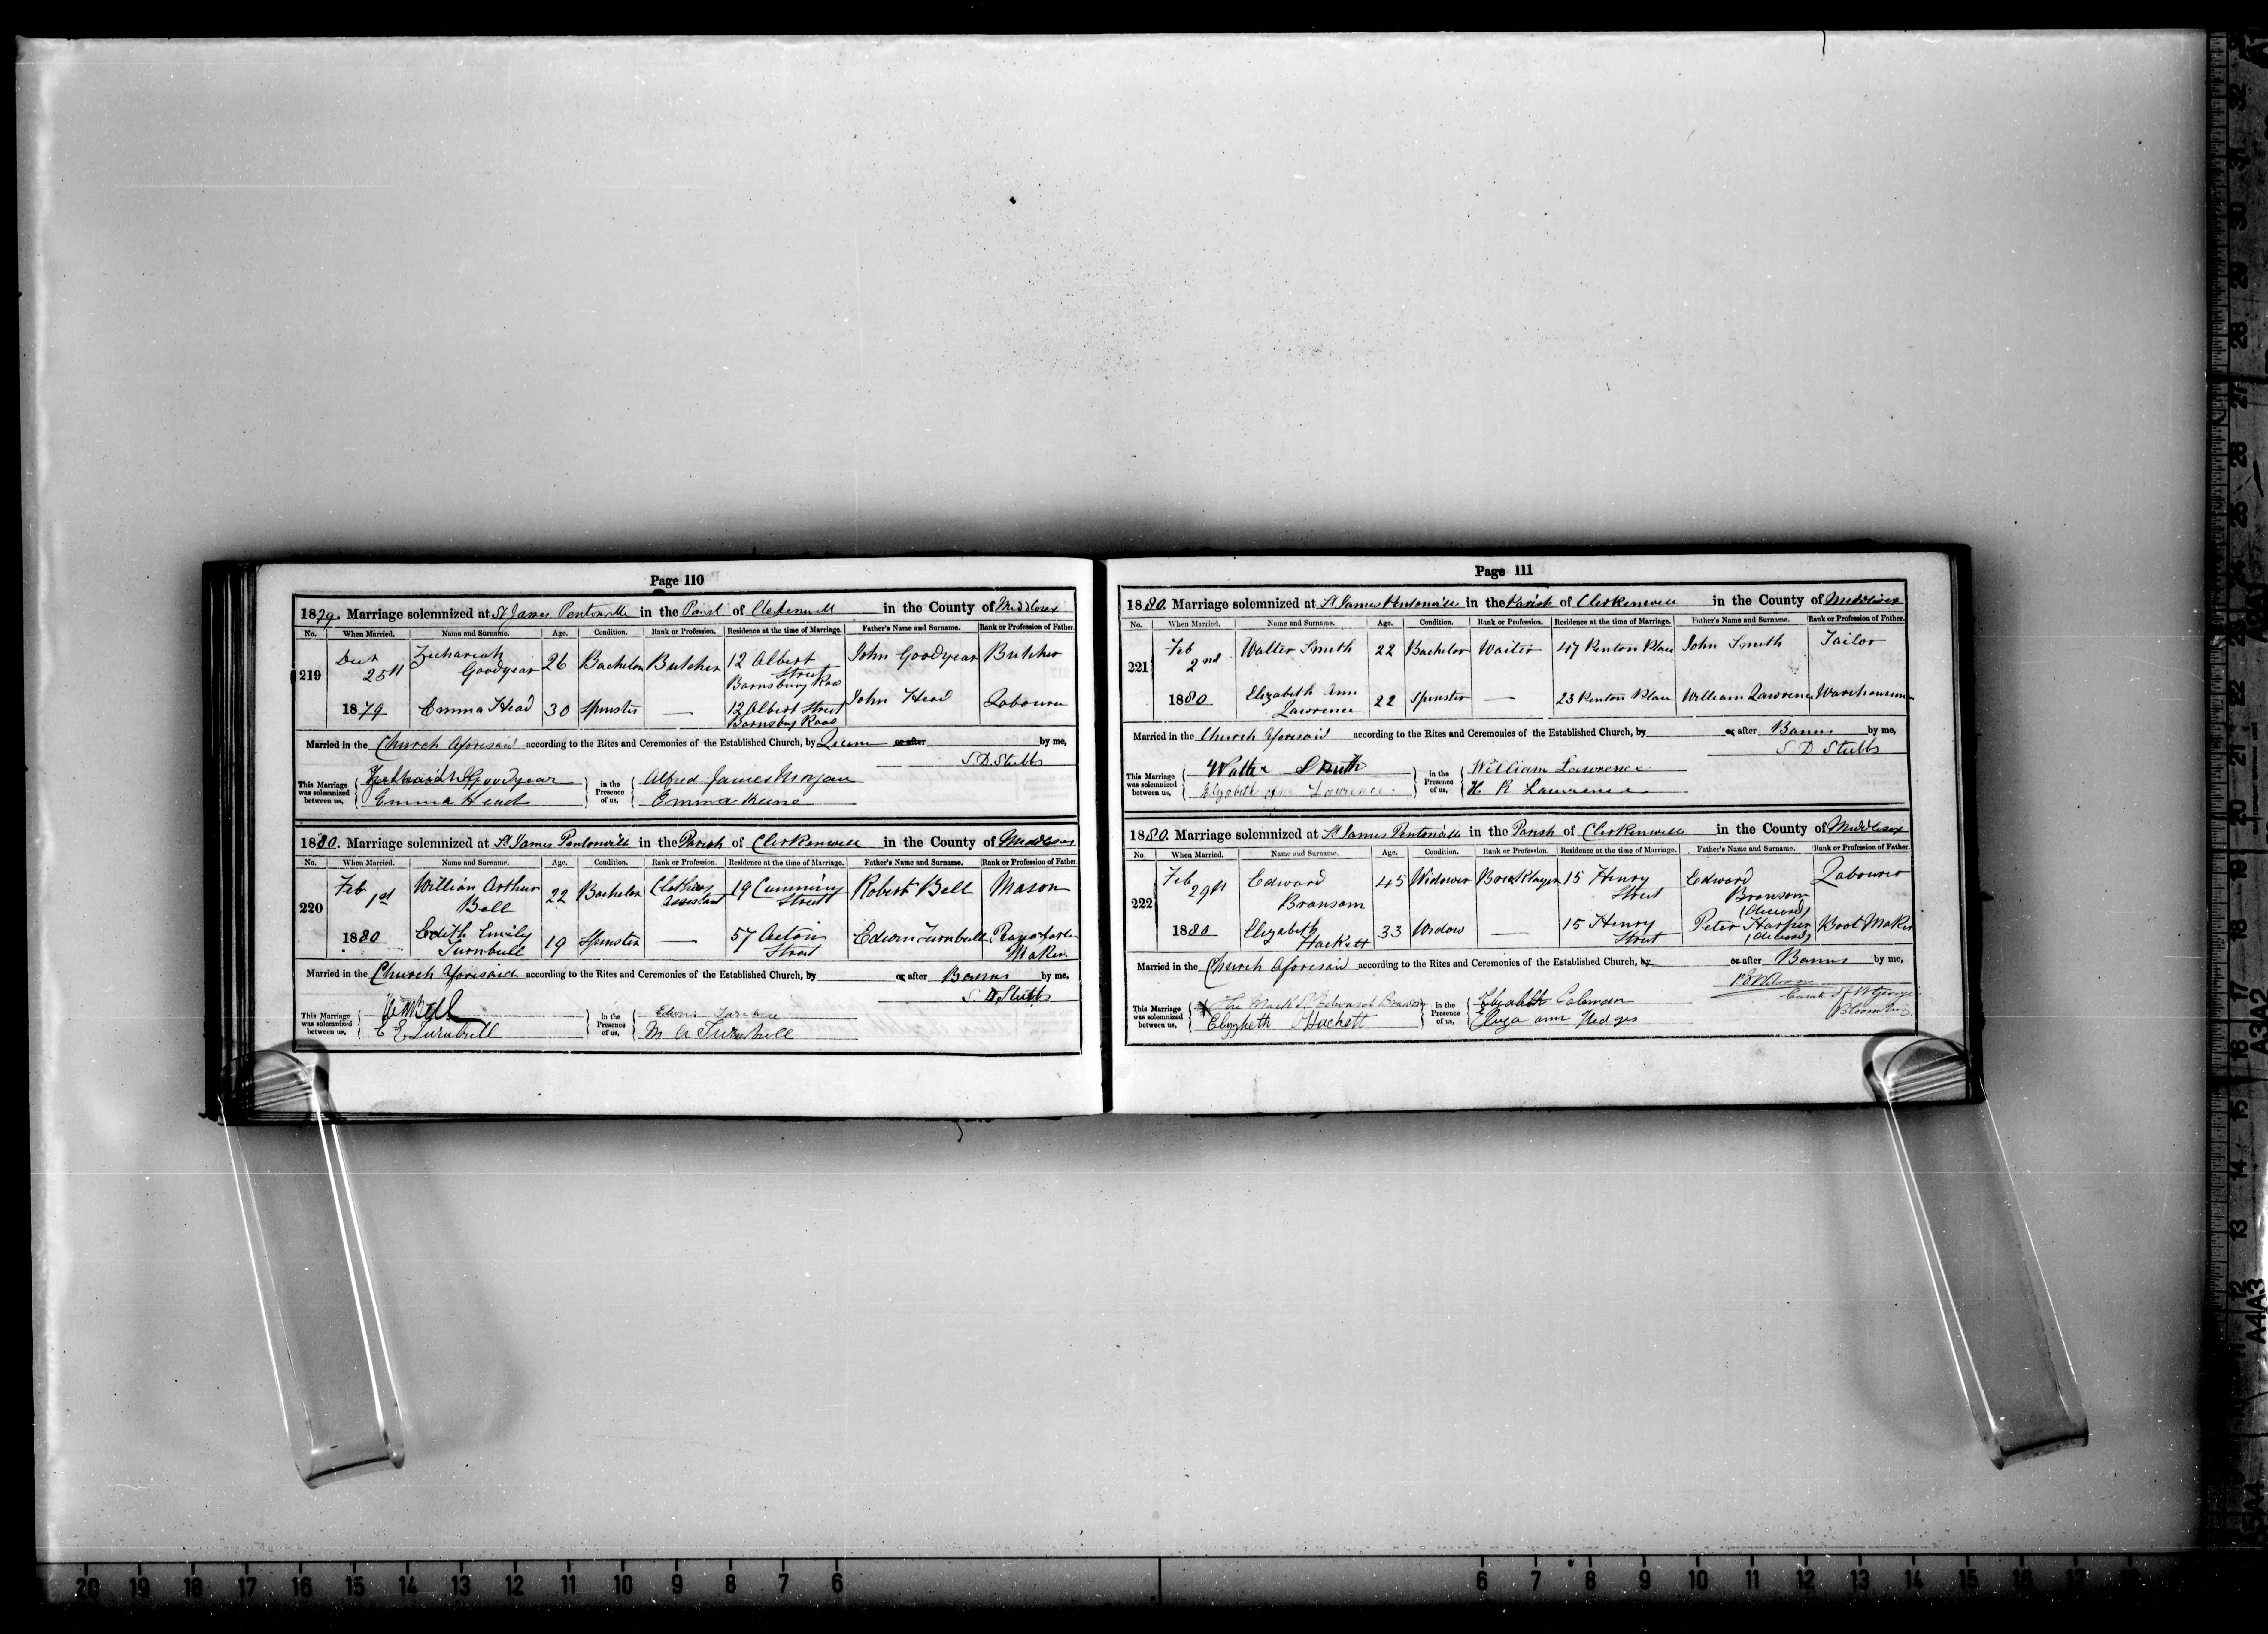 Page 110
1879. Marriage solemnized at St James Pentonville in the Parish of Clerkenwell in the County of Middlesex
No. When Married. Name and Surname. Age. Condition. Rank or Profession. Residence at the time of Marriage. Father's Name and Surname. Rank or Profession of Father.
219 25th Zechariah Goodyear 26 Bachelor Butcher 12 Albert Street Barnsbury Road John Goodyear Butcher
1879 Emma Head 30 Spinster — 12 Albert Street Barnsbury Road John Head Labourer
Married in the Church Aforesaid according to the Rites and Ceremonies of the Established Church, by or after by me,
S. D. Stubbs
This Marriage was solemnized between us, Goodyear in the Presence of us, Alfred James Morgan
Emma Head Emma
1880. Marriage solemnized at St James Pentonville in the Parish of Clerkenwell in the County of Middlesex
No. When Married. Name and Surname. Age. Condition. Rank or Profession. Residence at the time of Marriage. Father's Name and Surname. Rank or Profession of Father.
220 Feb 1st William Arthur Bell 22 Bachelor Clothiers Assistant 19 Cumming Street Robert Bell Mason
1880 Edith Emily Turnbull 19 Spinster — 57 Acton Street Edwin Turnbull Maker
Married in the Church Aforesaid according to the Rites and Ceremonies of the Established Church, by or after Banns by me,
S. D. Stubbs
This Marriage was solemnized between us, Bell in the Presence of us, Edwin Turnbull
E E Turnbull M A Turnbull
Page 111
1880. Marriage solemnized at St James Pentonville in the Parish of Clerkenwell in the County of Middlesex
No. When Married. Name and Surname. Age. Condition. Rank or Profession. Residence at the time of Marriage. Father's Name and Surname. Rank or Profession of Father.
221 Feb 2nd Walter Smith 22 Bachelor Waiter 47 Penton Place John Smith Tailor
1880 Elizabeth Ann Lawrence 22 Spinster — 23 Penton Place William Lawrence Warehouseman
Married in the Church Aforesaid according to the Rites and Ceremonies of the Established Church, by or after Banns by me,
S. D Stubbs
This Marriage was solemnized between us, Walter Smith in the Presence of us, William Lawrence
Elizabeth Ann Lawrence H. R Lawrence
1880. Marriage solemnized at St James Pentonville in the Parish of Clerkenwell in the County of Middlesex
No. When Married. Name and Surname. Age. Condition. Rank or Profession. Residence at the time of Marriage. Father's Name and Surname. Rank or Profession of Father.
222 Feb 29th Edward Bransom 45 Widower Bricklayer 15 Henry Street Edward Bransom (deceased) Labourer
1880 Elizabeth Hackett 33 Widow — 15 Henry Street Peter Harper (deceased) Boot Maker
Married in the Church Aforesaid according to the Rites and Ceremonies of the Established Church, by or after Banns by me,
Curate of St George
Bloomsbury
This Marriage was solemnized between us, X The Mark of Edward Bransom in the Presence of us, Elizabeth Coleman
Elizabeth Hackett Eliza Ann Hedges
20 19 18 17 16 15 14 13 12 11 10 9 8 7 6 6 7 8 9 10 11 12 13 14 15 16 17